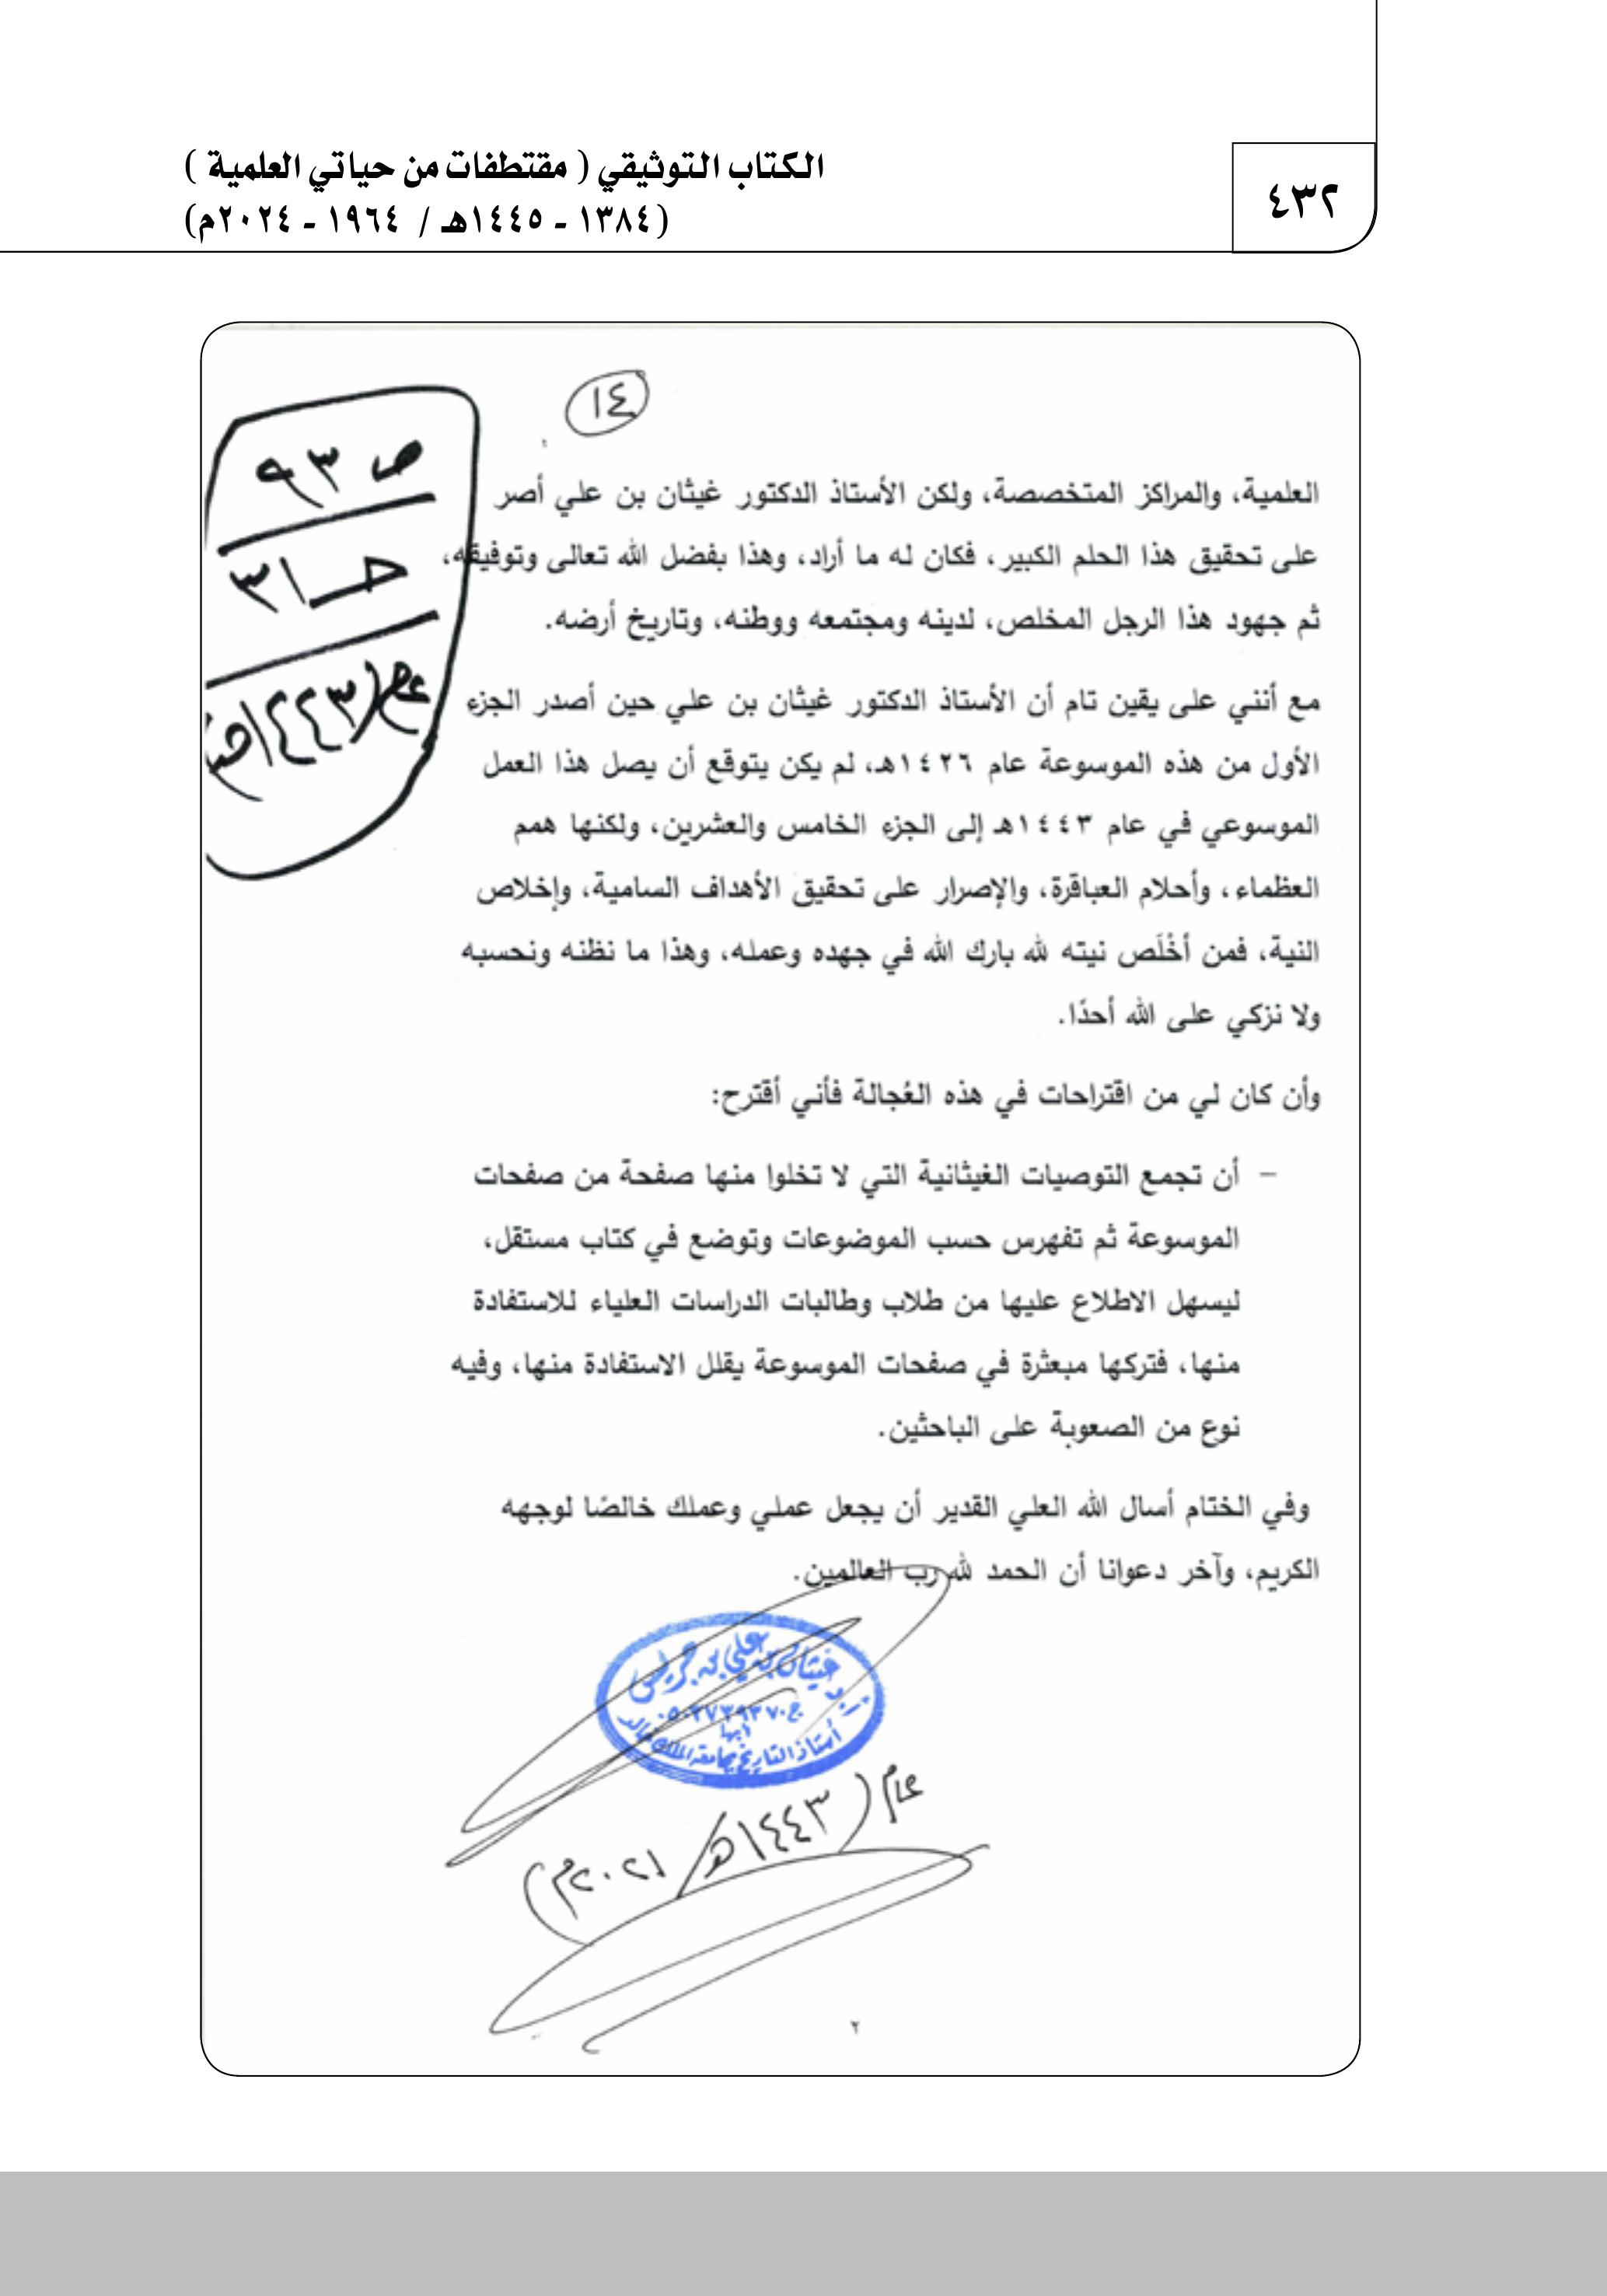 الكتاب التوثيقي ( مقتطفات من حياتي العلمية )
(١٣٨٤ - ١٤٤٥هـ / ١٩٦٤ - ٢٠٢٤م)
٤٣٢
١٤
ص ٩٣
حـ ٣١
عام (١٤٤٣هـ
العلمية، والمراكز المتخصصة، ولكن الأستاذ الدكتور غيثان بن علي أصر
على تحقيق هذا الحلم الكبير، فكان له ما أراد، وهذا بفضل الله تعالى وتوفيقه،
ثم جهود هذا الرجل المخلص، لدينه ومجتمعه ووطنه، وتاريخ أرضه.
مع أنني على يقين تام أن الأستاذ الدكتور غيثان بن علي حين أصدر الجزء
الأول من هذه الموسوعة عام ١٤٢٦هـ، لم يكن يتوقع أن يصل هذا العمل
الموسوعي في عام ١٤٤٣هـ إلى الجزء الخامس والعشرين، ولكنها همم
العظماء، وأحلام العباقرة، والإصرار على تحقيق الأهداف السامية، وإخلاص
النية، فمن أخْلَص نيته لله بارك الله في جهده وعمله، وهذا ما نظنه ونحسبه
ولا نزكي على الله أحدًا.
وأن كان لي من اقتراحات في هذه العُجالة فأني أقترح:
– أن تجمع التوصيات الغيثانية التي لا تخلوا منها صفحة من صفحات
الموسوعة ثم تفهرس حسب الموضوعات وتوضع في كتاب مستقل،
ليسهل الاطلاع عليها من طلاب وطالبات الدراسات العلياء للاستفادة
منها، فتركها مبعثرة في صفحات الموسوعة يقلل الاستفادة منها، وفيه
نوع من الصعوبة على الباحثين.
وفي الختام أسال الله العلي القدير أن يجعل عملي وعملك خالصًا لوجهه
الكريم، وآخر دعوانا أن الحمد لله رب العالمين.
غيثان بن علي بن جريس
أبها
أستاذ التاريخ بجامعة الملك خالد
عام (١٤٤٣هـ / ٢٠٢١م)
٢